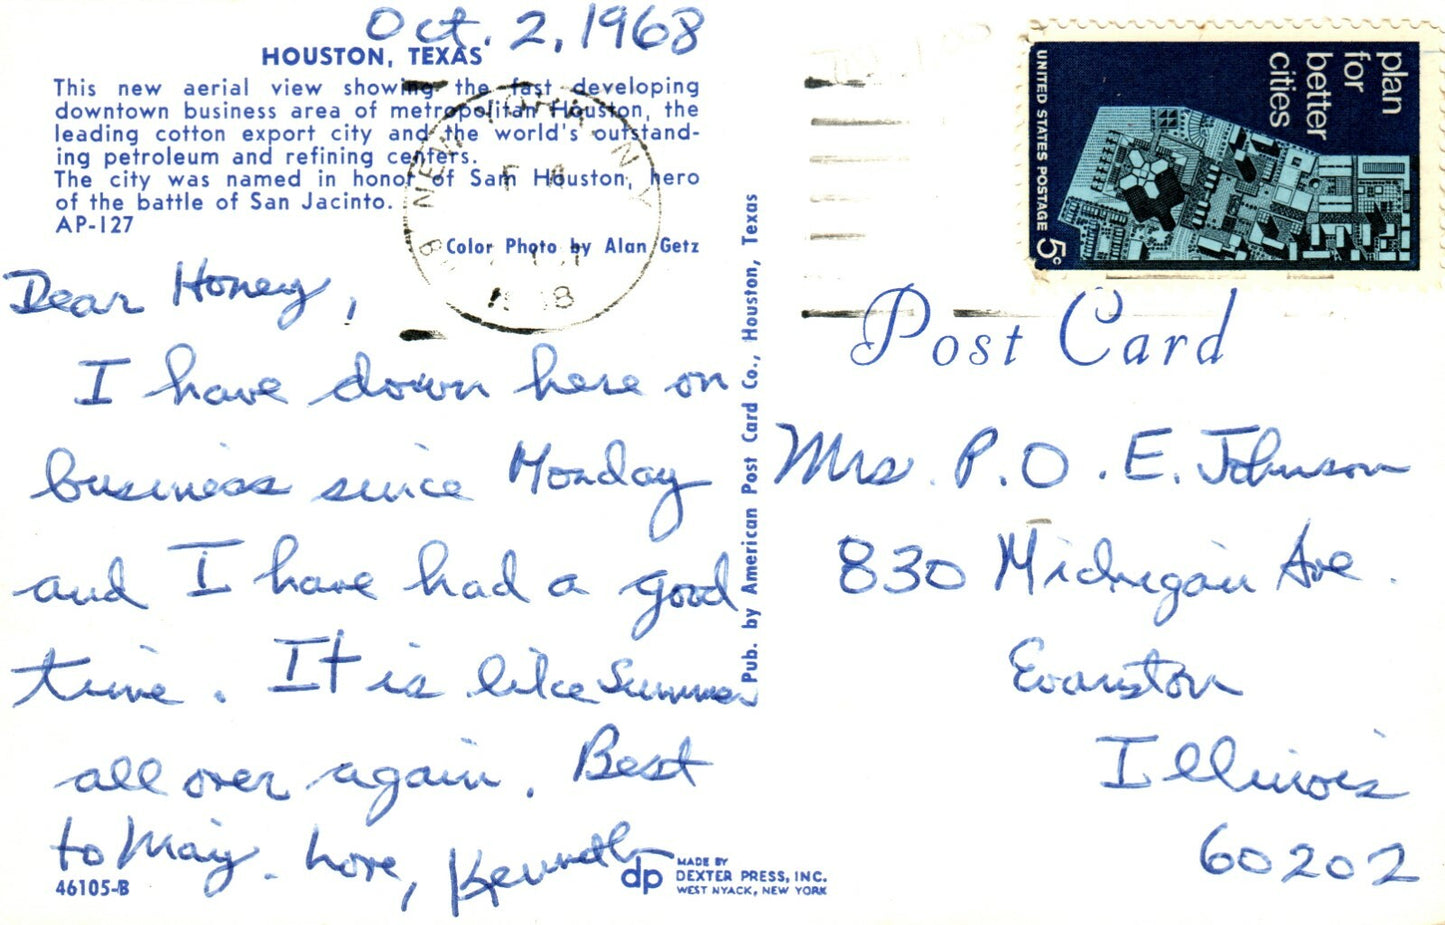 Oct. 2, 1968
HOUSTON, TEXAS
This new aerial view showing the fast developing
downtown business area of metropolitan Houston, the
leading cotton export city and the world's outstand-
ing petroleum and refining centers.
The city was named in honor of Sam Houston, hero
of the battle of San Jacinto.
AP-127
Color Photo by Alan Getz
NEW YORK, N.Y.
Dear Honey,
I have down here on
business since Monday
and I have had a good
time. It is like Summer
all over again. Best
to May. Love, Kenneth
46105-B
dp
MADE BY
DEXTER PRESS, INC.
WEST NYACK, NEW YORK
Pub. by American Post Card Co., Houston, Texas
plan
for
better
cities
UNITED STATES POSTAGE 5c
Post Card
Mrs. P.O.E. Johnson
830 Michigan Ave.
Evanston
Illinois
60202